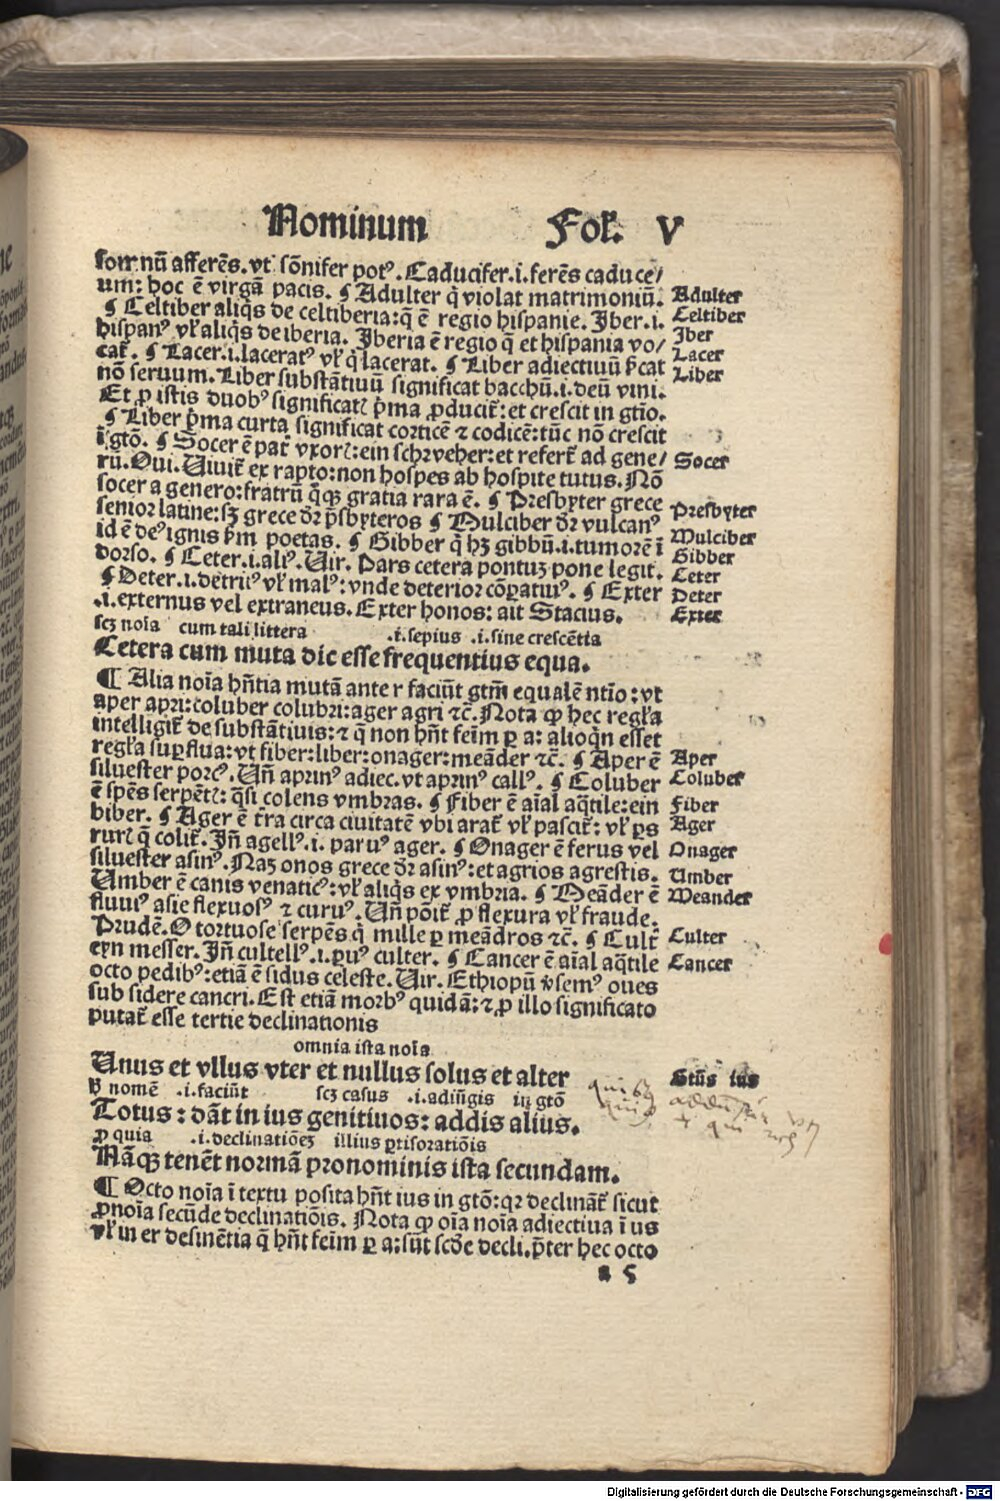 Nominum Fol. V
somnū afferēs. vt sōnifer potꝰ. Caducifer .i. ferēs caduce/
um: hoc ē virgā pacis. ¶ Adulter q̇ violat matrimoniū. Adulter
¶ Celtiber aliq̇s de celtiberia: q̄ ē regio hispanie. Iber .i. Celtiber
hispanꝰ vl̄ aliq̇s de iberia. Iberia ē regio q̄ et hispania vo/ Iber
cat̄. ¶ Lacer .i. laceratꝰ vl̄ q̇ lacerat. ¶ Liber adiectiuū p̄cat Lacer
nō seruum. Liber substātiuū significat bacchū .i. deū vini. Liber
Et ꝓ istis duobꝰ significatꝭ p̄ma ꝓducit̄: et crescit in gtio.
¶ Liber p̄ma curta significat corticē ⁊ codicē: tūc nō crescit
ī gtō. ¶ Socer ē pat̄ vxorꝭ: ein schweher: et refert̄ ad gene/ Socer
rū. Oui. Viuit̄ ex rapto: non hospes ab hospite tutus. Nō
socer a genero: fratrū q̄qꝫ gratia rara ē. ¶ Presbyter grece
senior latine: sꝫ grece dr̄ p̄sbyteros ¶ Mulciber dr̄ vulcanꝰ Presbyter
id ē deꝰ ignis s̄m poetas. ¶ Gibber q̇ hꝫ gibbū .i. tumorē ī Mulciber
dorso. ¶ Ceter .i. aliꝰ. Vir. Pars cetera pontuꝫ pone legit. Gibber
¶ Deter .i. detriꝰ vl̄ malꝰ: vnde deterior cōꝑatuꝛꝰ. ¶ Exter Ceter
.i. externus vel extraneus. Exter honos: ait Stacius. Deter
Exter
scꝫ noīa cum tali littera .i. sepius .i. sine crescētia
Cetera cum muta dic esse frequentius equa.
¶ Alia noīa hn̄tia mutā ante r faciūt gtm̄ equalē ntīo: vt
aper apri: coluber colubri: ager agri ⁊c̄. Nota ꝙ hec regl̄a
intelligit̄ de substātiuis: ⁊ q̄ non hn̄t feīm ꝑ a: alioq̇n esset
regl̄a suꝑflua: vt fiber: liber: onager: meāder ⁊c̄. ¶ Aper ē Aper
siluester porcꝰ. Vn̄ aprinꝰ adiec. vt aprinꝰ callꝰ. ¶ Coluber Coluber
ē spēs serpētꝭ: q̄si colens vmbras. ¶ Fiber ē aīal aq̄tile: ein Fiber
biber. ¶ Ager ē t̄ra circa ciuitatē vbi arat̄ vl̄ pascit̄: vl̄ ꝑs Ager
rurꝭ q̄ colit̄. In̄ agellꝰ .i. paruꝰ ager. ¶ Onager ē ferus vel Onager
siluester asinꝰ. Naꝫ onos grece dr̄ asinꝰ: et agrios agrestis. Umber
Umber ē canis venaticꝰ: vl̄ aliq̇s ex vmbria. ¶ Meāder ē Meander
fluuiꝰ asie flexuosꝰ ⁊ curuꝰ. Vn̄ pōit̄ ꝓ flexura vl̄ fraude.
Prudē. O tortuose serpēs q̇ mille ꝑ meādros ⁊c̄. ¶ Cult̄ Culter
eyn messer. In̄ cultellꝰ .i. ꝑuꝰ culter. ¶ Cancer ē aīal aq̄tile Cancer
octo pedibꝰ: etiā ē sidus celeste. Vir. Ethiopū v̄semꝰ oues
sub sidere cancri. Est etiā morbꝰ quidā: ⁊ ꝓ illo significato
putat̄ esse tertie declinationis
omnia ista noīa
Unus et vllus vter et nullus solus et alter Gtūs ius
nomē .i. faciūt scꝫ casus .i. adiūgis in gtō
Totus: dāt in ius genitiuos: addis alius.
ꝓ quia .i. declinatiōeꝫ illius
Nāqꝫ tenēt normā pronominis ista secundam.
¶ Octo noīa ī textu posita hn̄t ius in gtō: qꝛ declināt̄ sicut
ꝓnoīa secūde declinatiōis. Nota ꝙ oīa noīa adiectiua ī us
vl̄ in er desinētia q̄ hn̄t feīm ꝑ a: sūt scd̄e decli. p̄ter hec octo
a 5
Digitalisierung gefördert durch die Deutsche Forschungsgemeinschaft - DFG